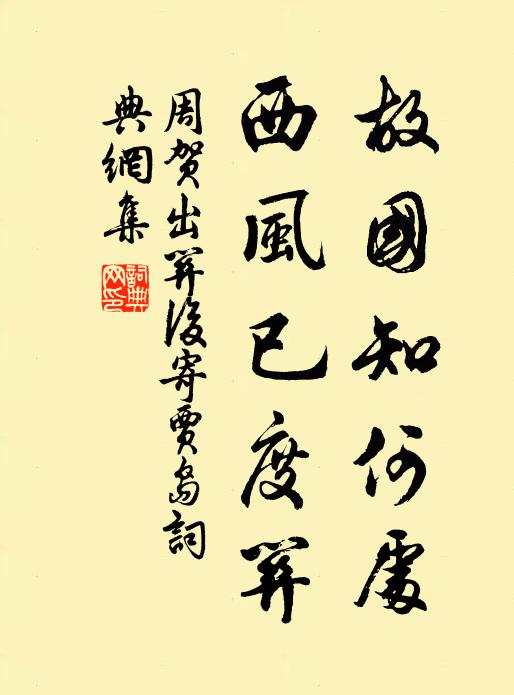 故國知何處
西風已度關
周賀出關後寄賈島詞
典網集
詞典網印